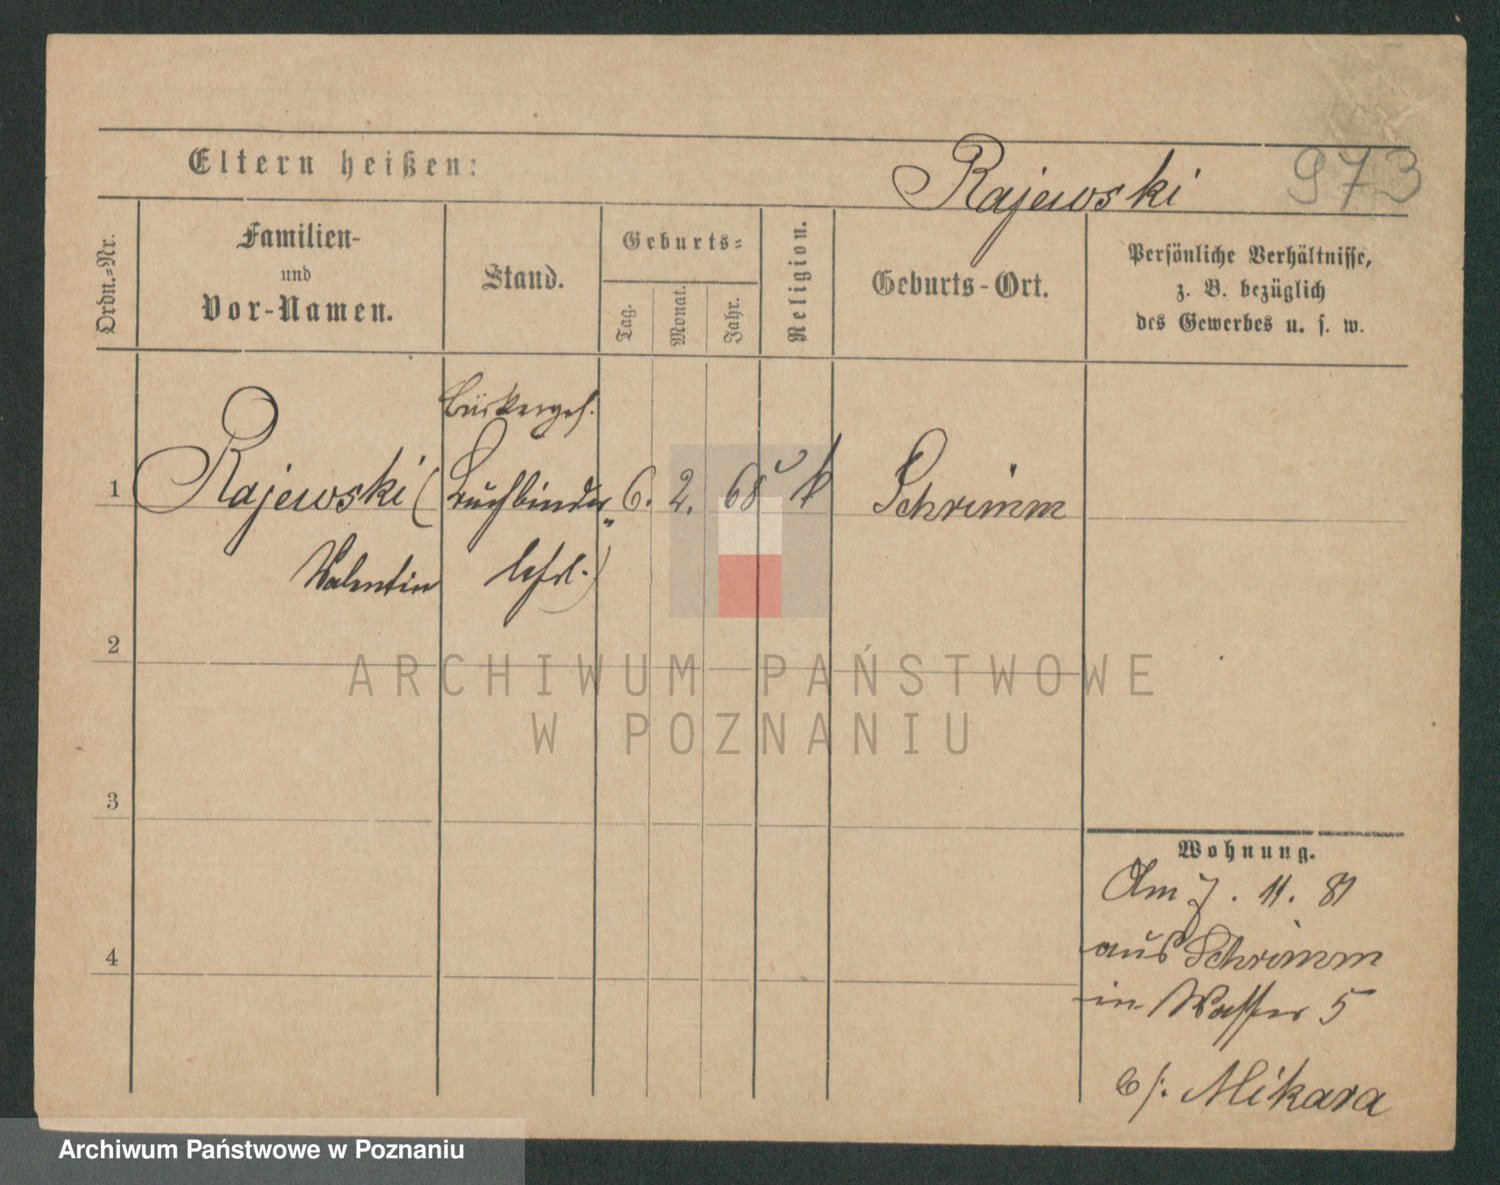 Eltern heißen:
Rajewski
973
Ordn.=Nr.
Familien-
und
Vor-Namen.
Stand.
Geburts=
Tag.
Monat.
Jahr.
Religion.
Geburts-Ort.
Persönliche Verhältnisse,
z. B. bezüglich
des Gewerbes u. s. w.
1
Rajewski
Valentin
(Buchbinder
lehrl.)
6. 2. 68 k
Schrimm
2
3
4
Wohnung.
Am 7. 11. 81
aus Schrimm
in Wasser 5
b/: Mikara
ARCHIWUM PAŃSTWOWE
W POZNANIU
Archiwum Państwowe w Poznaniu